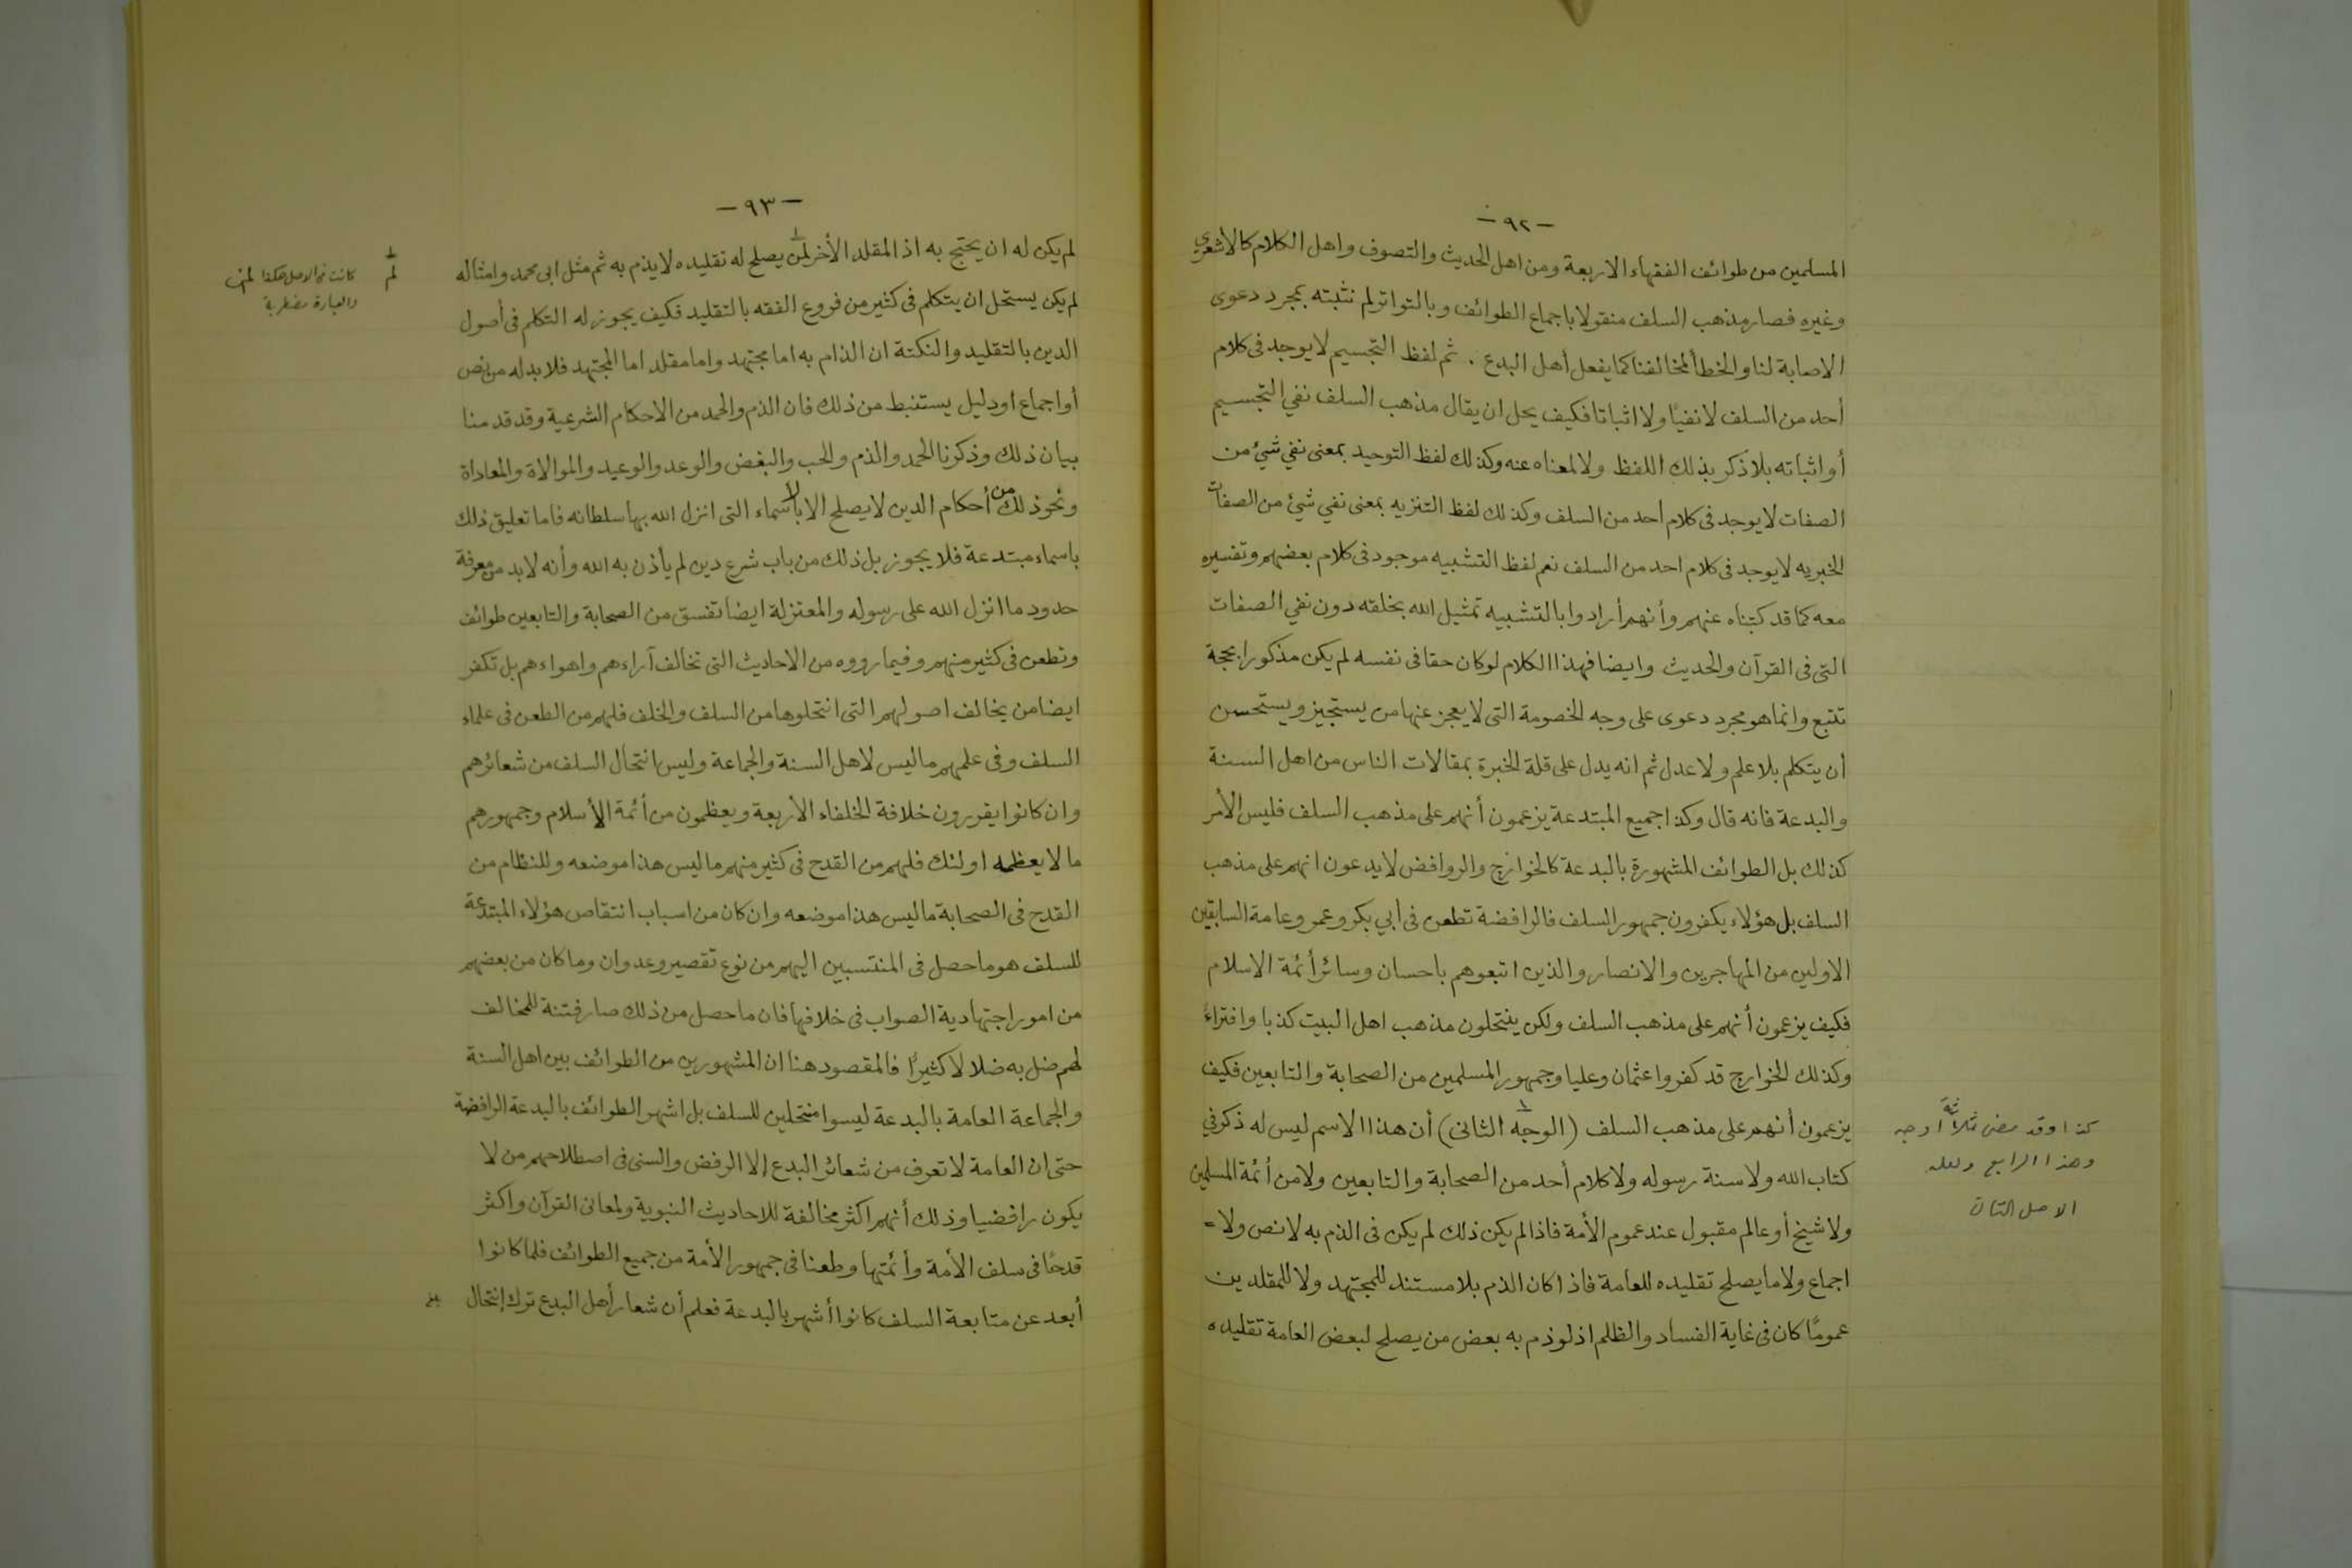 -٩٢-
المسلمين من طوائف الفقهاء الاربعة ومن اهل الحديث والتصوف واهل الكلام كالاشعري
وغيره فصار مذهب السلف منقولا باجماع الطوائف وبالتواتر لم نثبته بمجرد دعوى
الاصابة لنا والخطأ لمخالفنا كما يفعل أهل البدع . ثم لفظ التجسيم لا يوجد فى كلام
أحد من السلف لا نفيًا ولا اثباتا فكيف يحل ان يقال مذهب السلف نفي التجسيم
أو اثباته بلا ذكر بذلك اللفظ ولا لمعناه عنه وكذلك لفظ التوحيد بمعنى نفي شيئ من
الصفات لا يوجد فى كلام أحد من السلف وكذلك لفظ التنزيه بمعنى نفي شيئ من الصفات
الخبريه لا يوجد فى كلام احد من السلف نعم لفظ التشبيه موجود فى كلام بعضهم وتفسيره
معه كما قد كتبناه عنهم وأنهم أرادوا بالتشبيه تمثيل الله بخلقه دون نفي الصفات
التى فى القرآن والحديث وايضا فهذا الكلام لو كان حقا فى نفسه لم يكن مذكورا بحجة
تتبع وانما هو مجرد دعوى على وجه الخصومة التى لا يعجز عنها من يستجيز ويستحسن
أن يتكلم بلا علم ولا عدل ثم انه يدل على قلة الخبرة بمقالات الناس من اهل السنة
والبدعة فانه قال وكذا جميع المبتدعة يزعمون أنهم على مذهب السلف فليس الأمر
كذلك بل الطوائف المشهورة بالبدعة كالخوارج والروافض لا يدعون انهم على مذهب
السلف بل هؤلاء يكفرون جمهور السلف فالرافضة تطعن فى أبي بكر وعمر وعامة السابقين
الاولين من المهاجرين والانصار والذين اتبعوهم باحسان وسائر أئمة الاسلام
فكيف يزعمون أنهم على مذهب السلف ولكن ينتحلون مذهب اهل البيت كذبا وافتراءً
وكذلك الخوارج قد كفروا عثمان وعليا وجمهور المسلمين من الصحابة والتابعين فكيف
يزعمون أنهم على مذهب السلف (الوجه ١ الثانى) أن هذا الاسم ليس له ذكر في
كتاب الله ولا سنة رسوله ولا كلام أحد من الصحابة والتابعين ولا من أئمة المسلمين
ولا شيخ أو عالم مقبول عند عموم الأمة فاذا لم يكن ذلك لم يكن فى الذم به لا نص ولا =
اجماع ولا ما يصلح تقليده للعامة فاذا كان الذم بلا مستند للمجتهد ولا للمقلدين
عمومًا كان فى غاية الفساد والظلم اذ لو ذم به بعض من يصلح لبعض العامة تقليده
كذا وقد مضى ثلاثة أوجه
وهذا الرابع ولعله
الاصل
-٩٣-
لم يكن له ان يحتج به اذ المقلد الأخر لمن ١ يصلح له تقليده لا يذم به ثم مثل ابى محمد وامثاله
لم يكن يستحل ان يتكلم فى كثير من فروع الفقه بالتقليد فكيف يجوز له التكلم فى أصول
الدين بالتقليد والنكتة ان الذام به اما مجتهد واما مقلد اما المجتهد فلا بد له من نص
أو اجماع او دليل يستنبط من ذلك فان الذم والحمد من الاحكام الشرعية وقد قدمنا
بيان ذلك وذكرنا الحمد والذم والحب والبغض والوعد والوعيد والموالاة والمعاداة
ونحو ذلك من أحكام الدين لا يصلح الا بالأسماء التى انزل الله بها سلطانه فاما تعليق ذلك
باسماء مبتدعة فلا يجوز بل ذلك من باب شرع دين لم يأذن به الله وأنه لا بد من معرفة
حدود ما انزل الله على رسوله والمعتزلة ايضا تفسق من الصحابة والتابعين طوائف
وتطعن فى كثير منهم وفيما رووه من الاحاديث التى تخالف آراءهم واهواءهم بل تكفر
ايضا من يخالف اصولهم التى انتحلوها من السلف والخلف فلهم من الطعن فى علماء
السلف وفى علمهم ما ليس لاهل السنة والجماعة وليس انتحال السلف من شعائرهم
وان كانوا يقررون خلافة الخلفاء الأربعة ويعظمون من أئمة الأسلام وجمهورهم
ما لا يعظمه اولئك فلهم من القدح فى كثير منهم ما ليس هذا موضعه وللنظام من
القدح فى الصحابة ما ليس هذا موضعه وان كان من اسباب انتقاص هؤلاء المبتدعة
للسلف هو ما حصل فى المنتسبين اليهم من نوع تقصير وعدوان وما كان من بعضهم
من امور اجتهادية الصواب فى خلافها فان ما حصل من ذلك صار فتنة للمخالف
لهم ضل به ضلالا كثيرًا فالمقصود هنا ان المشهورين من الطوائف بين اهل السنة
والجماعة العامة بالبدعة ليسوا منتحلين للسلف بل اشهر الطوائف بالبدعة الرافضة
حتى ان العامة لا تعرف من شعائر البدع إلا الرفض والسنى فى اصطلاحهم من لا
يكون رافضيا وذلك أنهم اكثر مخالفة للاحاديث النبوية ولمعانى القرآن واكثر
قدحًا فى سلف الأمة وأئمتها وطعنا فى جمهور الأمة من جميع الطوائف فلما كانوا
أبعد عن متابعة السلف كانوا أشهر بالبدعة فعلم أن شعار أهل البدع ترك إنتحال
١ لم
كانت فى الاصل هكذا لمن
والعبارة مضطربة